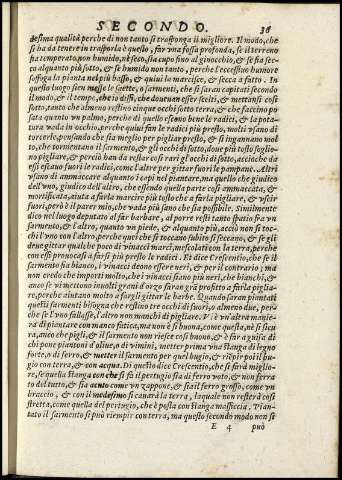 SECONDO. 36
desima qualità perche di non tanto si trasponga il migliore. Il modo, che
si ha da tenere in trasporla è quello, far vna fossa profonda, se il terreno
sia temperato, non humido, ne seco, sia cupo fino al ginocchio, & se sia sec-
co alquanto più sotto, & se humido non tanto, perche l'eccessiuo humore
soffoga la pianta nel più basso, & quiui la marcisce, & secca a fatto. In
questo luogo sien messe le saette, o sarmenti, che si saran capitati secondo
il modo, & il tempo, che io dissi, che doueuan esser scelti, & mettansi così
sotto, tanto che almeno restino cinque occhi sotto terra, & che faccino po
sata quanto vn palmo, perche di quello escono bene le radici, & la pota-
tura vada in occhio, perche quiui fan le radici più presto, molti vsano di
torcerle, pensando che sia meglio per pigliar presto, & si ingannano mol
to, che tormentano il sarmento, & gli occhi di sotto, doue più tosto soglio-
no pigliare, & perciò han da restar così rari gli occhi di sotto, accioche da
essi escano fuori le radici, come l'altre per gittar fuori le pampane. Altri
vsano di ammaccare alquanto i capi nel piantare, ma quello che giudico
dell'vno, giudico dell'altro, che essendo quella parte così ammaccata, &
mortificata, aiuta a farla marcire più tosto che a farla pigliare, & vscir
fuori, però è il parer mio, che vada più sano che sia possibile. Similmente
dico nel luogo deputato al far barbare, al porre resti tanto spatio fra vn
sarmento, & l'altro, quanto vn piede, & alquanto più, acciò non si toc-
chi l'vno con l'altro, perche quei che si toccano subito si seccano, & se gli
deue gittar qualche poco di vinacci marci, mescolati con la terra, perche
con essi prouocasi a farsi più presto le radici. Et dice Crescentio, che se il
sarmento sia bianco, i vinacci deono essere neri, & per il contrario; ma
non credo che importi molto, che i vinacci siano più neri, che bianchi, &
anco se vi mettono inuolti grani d'orzo faran grā profitto a farla piglia-
re, perche aiutano molto a forgli gittar le barbe. Quando saran piantati
questi sarmenti bisogna che restino tre occhi di fuori, o almeno due, per-
che se l'vno fallasse, l'altro non manchi di pigliare. V'è vn'altra manie-
ra di piantare con manco fatica, ma non è sì buona, come questa, nè sì sicu
ra, anco che pigli, & il sarmento non riesce così buono, & è far a guisa di
chi pone piantoni d'oliue, o di vimini, metter prima vna stanga di legno
forte, o di ferro, & metter il sarmento per quel bugio, & riēpir poi il bu-
gio con terra, & con acqua. Di questo dice Crescentio, che si farà miglio-
re, se quella stanga con che si fa il pertugio sia di ferro voto, & non ferra
to del tutto, & sia acuto come vn zappone, & sia il ferro grosso, come vn
braccio, & con il medesimo si cauarà la terra, laquale non resterà così
stretta, come quella del pertugio, che è posta con stanga massiccia. Pian-
tato il sarmento si può riempir con terra, ma questo secondo modo non si
E 4 può